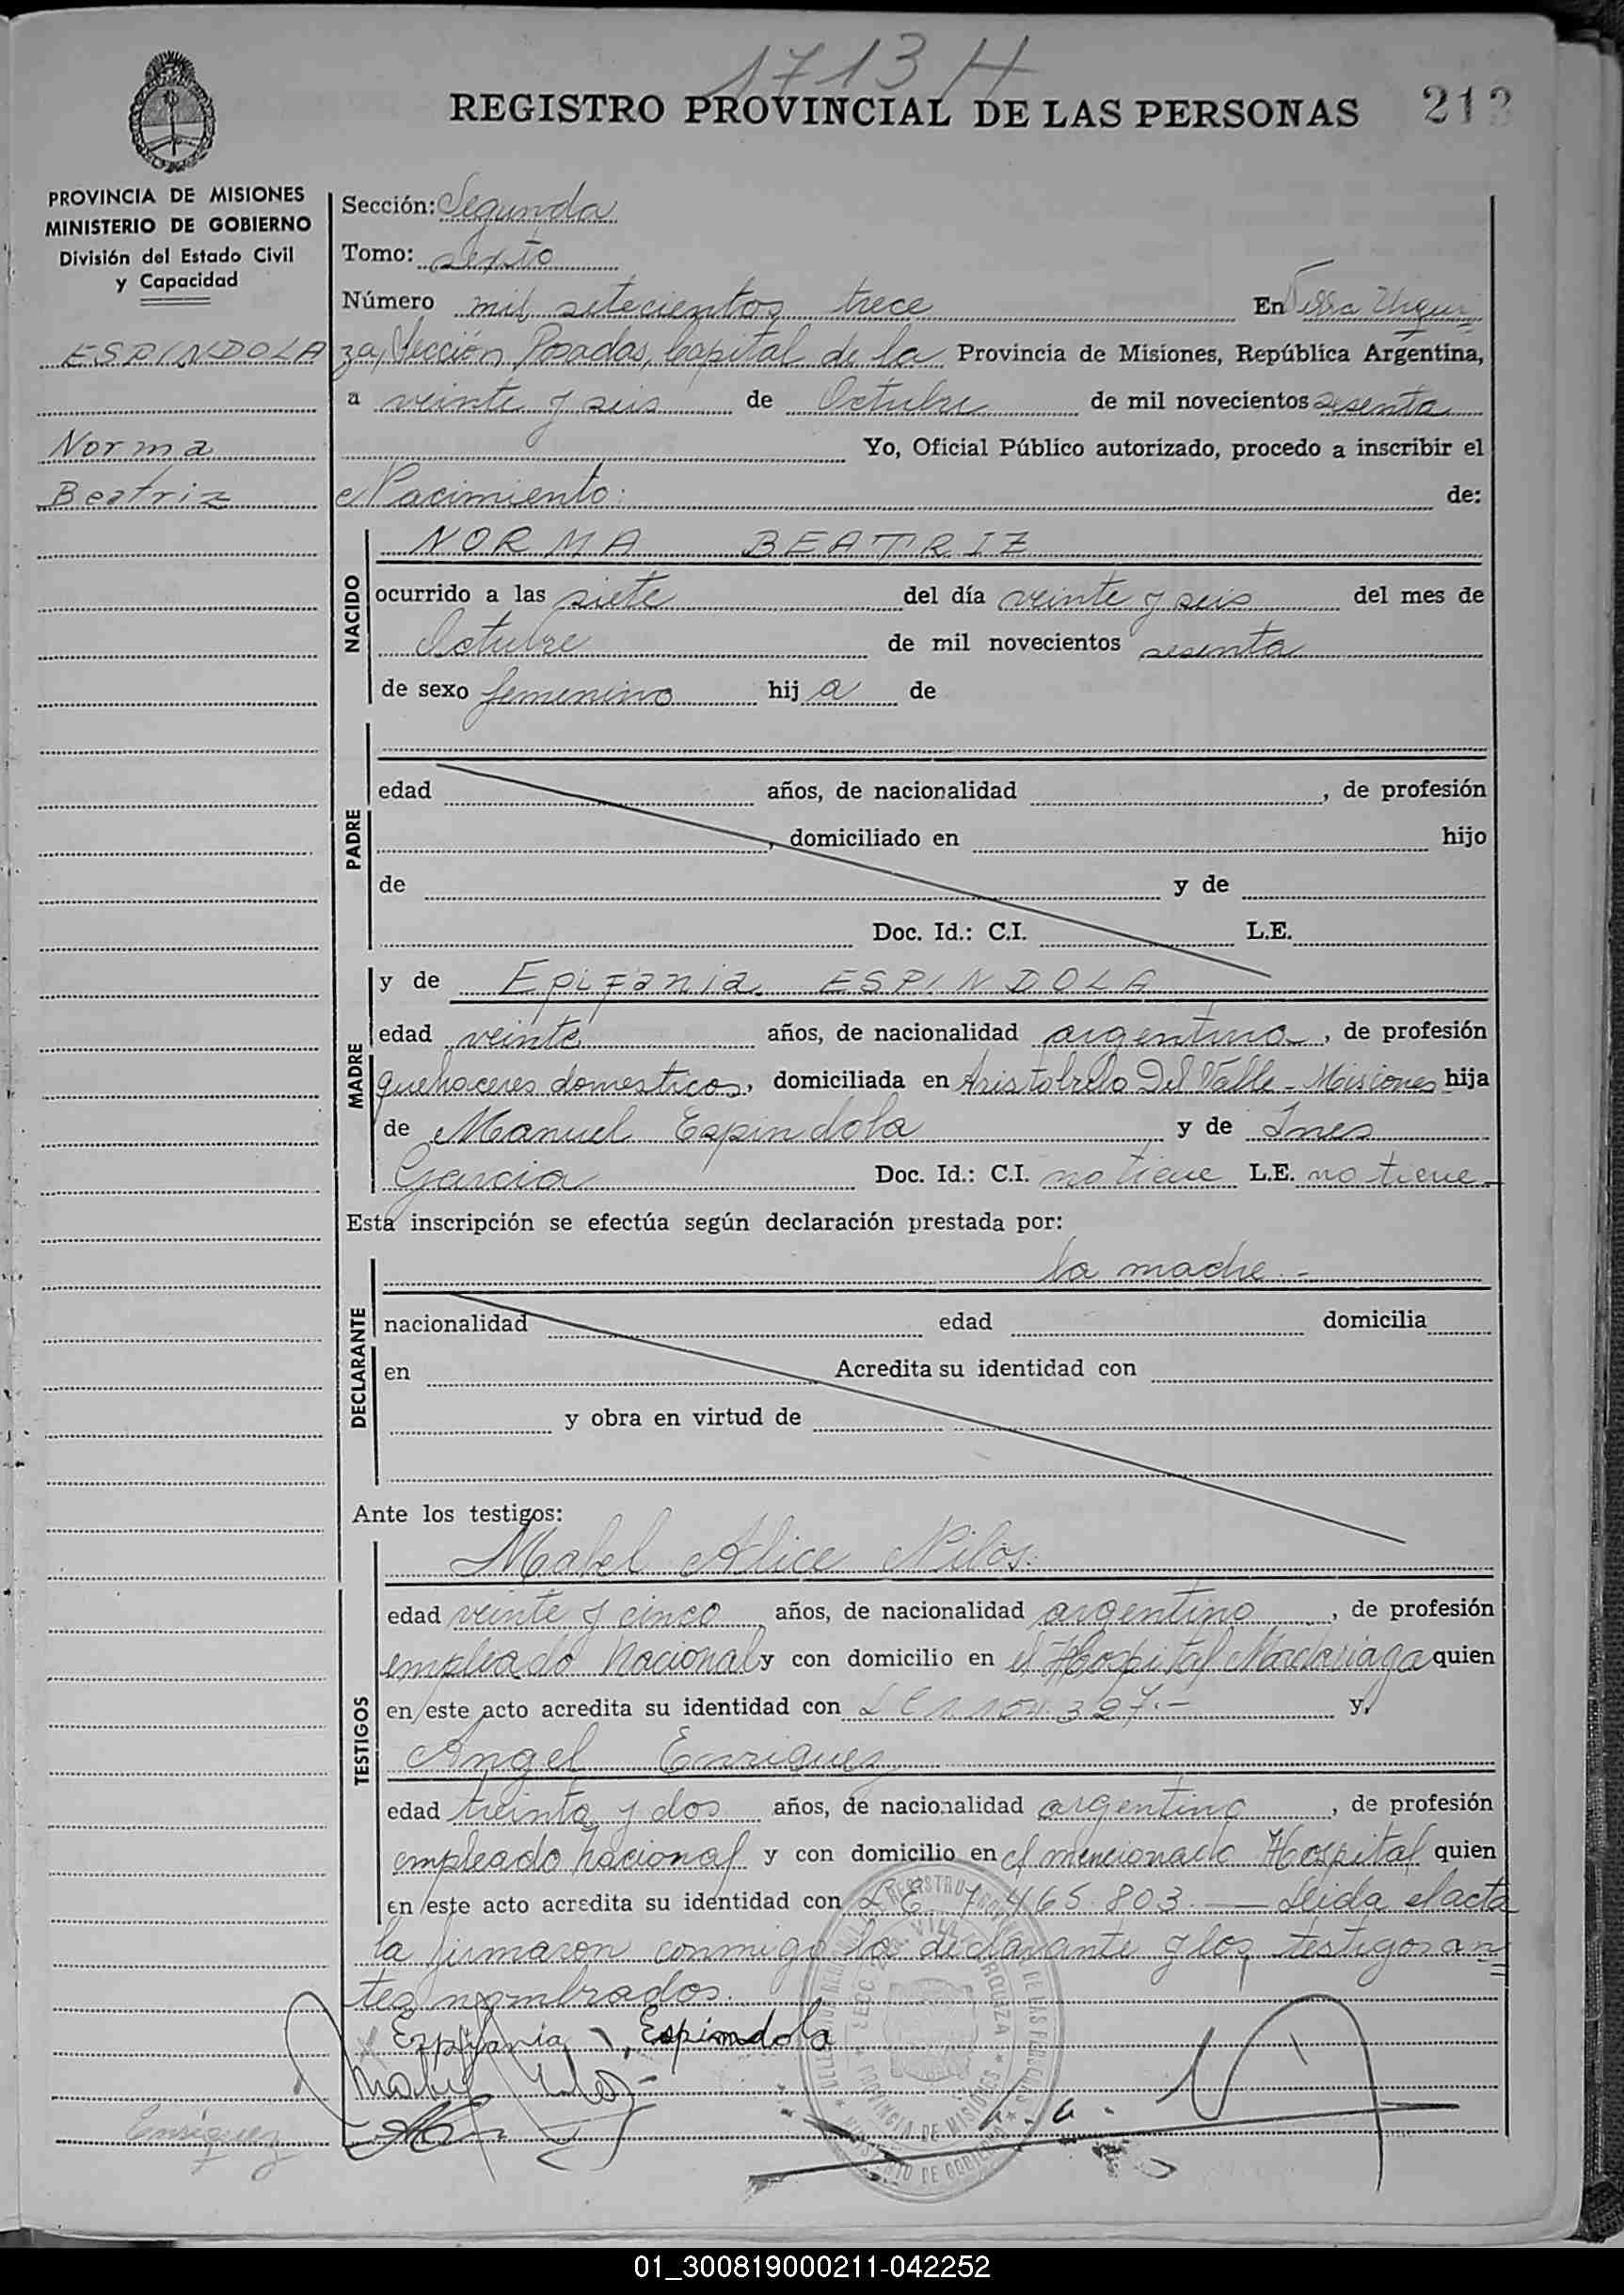 1713 H
REGISTRO PROVINCIAL DE LAS PERSONAS 212
PROVINCIA DE MISIONES
MINISTERIO DE GOBIERNO
División del Estado Civil
y Capacidad
ESPINDOLA
Norma
Beatriz
Sección: Segunda
Tomo: sexto
Número mil setecientos trece En Villa Urqui
za, Sección Posadas, Capital de la Provincia de Misiones, República Argentina,
a veinte y seis de Octubre de mil novecientos sesenta
Yo, Oficial Público autorizado, procedo a inscribir el
Nacimiento: de:
NACIDO
NORMA BEATRIZ
ocurrido a las siete del día veinte y seis del mes de
Octubre de mil novecientos sesenta
de sexo femenino hij a de
PADRE
edad años, de nacionalidad , de profesión
, domiciliado en hijo
de y de
Doc. Id.: C.I. L.E.
MADRE
y de Epifania ESPINDOLA
edad veinte años, de nacionalidad argentina , de profesión
quehaceres domesticos, domiciliada en Aristobulo Del Valle - Misiones hija
de Manuel Espindola y de Ines
Garcia Doc. Id.: C.I. no tiene L.E. no tiene
Esta inscripción se efectúa según declaración prestada por:
DECLARANTE
la madre.-
nacionalidad edad domicilia
en Acredita su identidad con
y obra en virtud de
Ante los testigos:
TESTIGOS
Mabel Alice
edad veinte y cinco años, de nacionalidad argentino , de profesión
empleado Nacional y con domicilio en el Hospital Madariaga quien
en este acto acredita su identidad con y,
Angel Enriquez
edad treinta y dos años, de nacionalidad argentino , de profesión
empleado nacional y con domicilio en el mencionado Hospital quien
en este acto acredita su identidad con L E 7.465.803.— Leida el acta
la firmaron conmigo la declarante y los testigos an
tes nombrados.
Epifania Espindola
Enriquez
PROVINCIA DE MISIONES
01_300819000211-042252